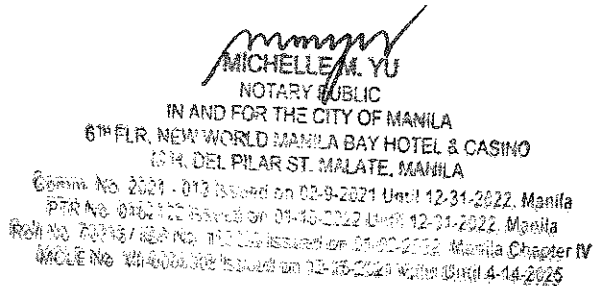 MICHELLE M. YU
NOTARY PUBLIC
IN AND FOR THE CITY OF MANILA
6TH FLR, NEW WORLD MANILA BAY HOTEL & CASINO
M.H. DEL PILAR ST. MALATE, MANILA
Comm. No. 2021 - 013 issued on 02-9-2021 Until 12-31-2022, Manila
PTR No. issued on 2022 Until 12-31-2022, Manila
Roll No. No. issued on Manila Chapter IV
MCLE No. issued on Until 4-14-2025